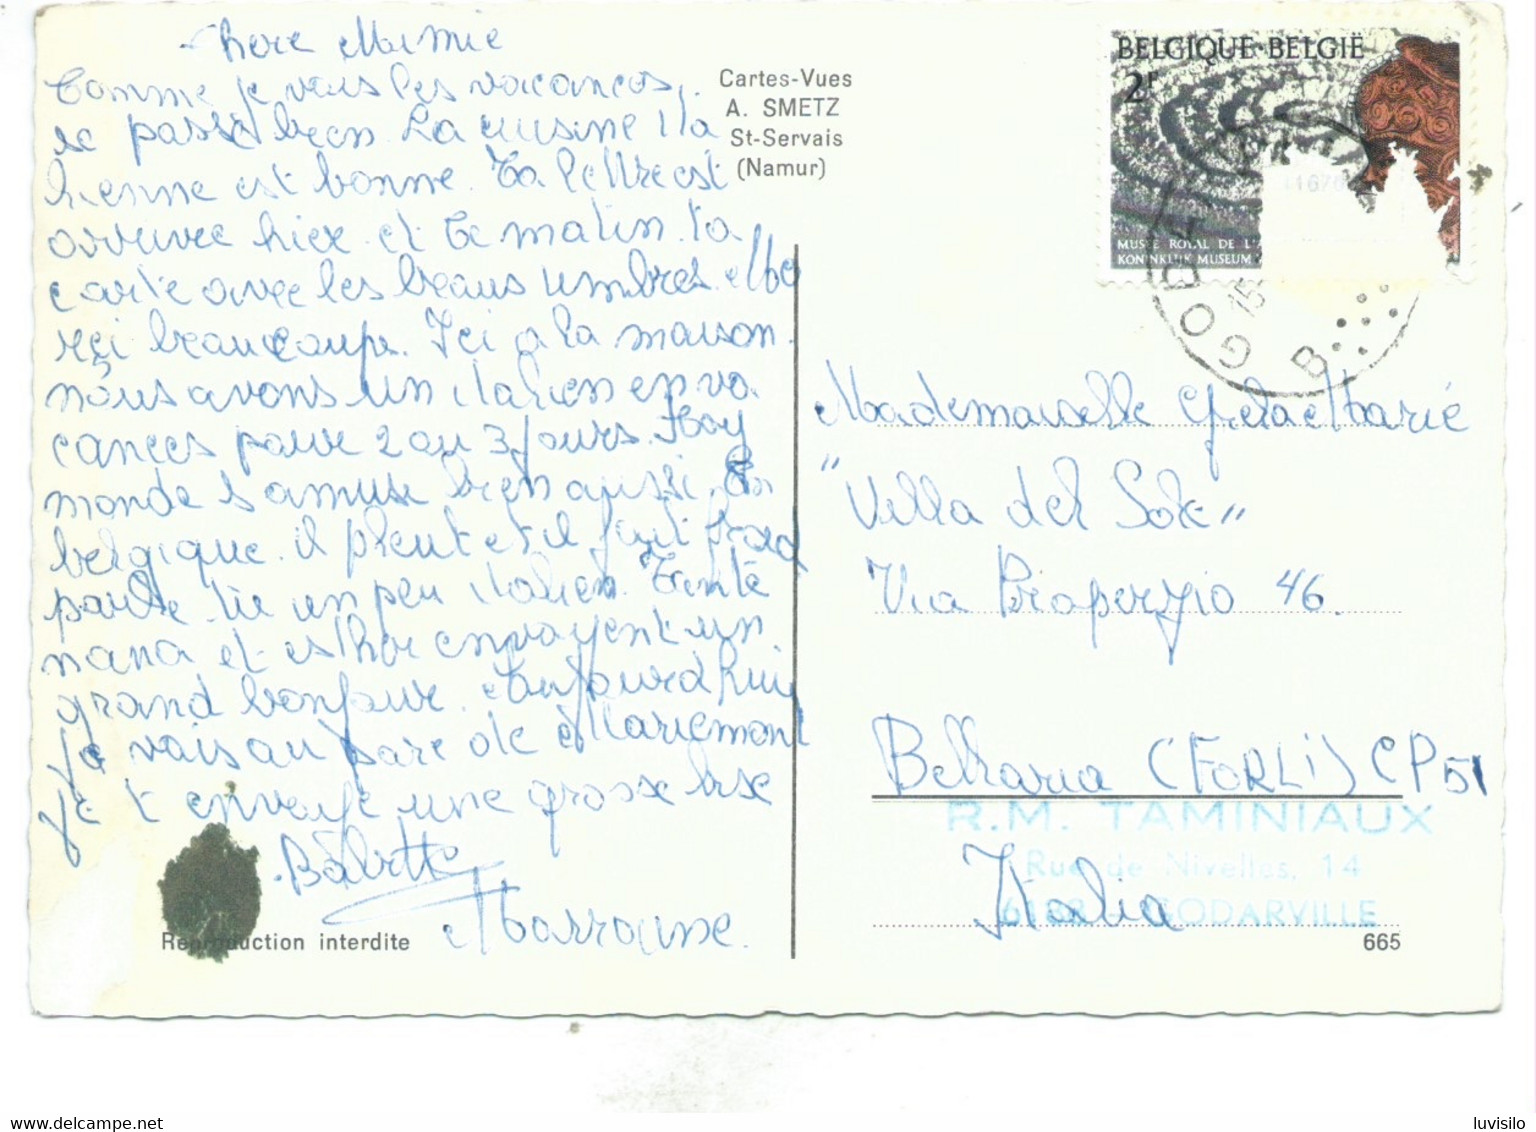 Chère Mamie
Comme je vous les vacances,
se passe bien. La cuisine Ita
lienne est bonne. Ta lettre est
arrivée hier et ce matin ta
carte avec les beaus timbres. Me
rçi beaucoups. Ici a la maison
nous avons un italien en va
cances pour 2 ou 3 jours.
monde s'amuse bien aussi. En
belgique. il pleut et il fait froid
parle tu un peu italien. Tente
nana et esther envoyent un
grand bonjour. Aujourd'hui
je vais au parc de Mariemont
je t envoye une grosse bise
Babette
Marraine.
Reproduction interdite
Cartes-Vues
A. SMETZ
St-Servais
(Namur)
BELGIQUE-BELGIË
2F
MUSÉE ROYAL DE L'A
KONINKLIJK MUSEUM
GODA
15
B
Mademoiselle Marie
"Villa del Sole"
Via Properzio 46.
Bellaria (FORLI) CP 51
Italia
R.M. TAMINIAUX
Rue de Nivelles, 14
GODARVILLE
665
luvisilo